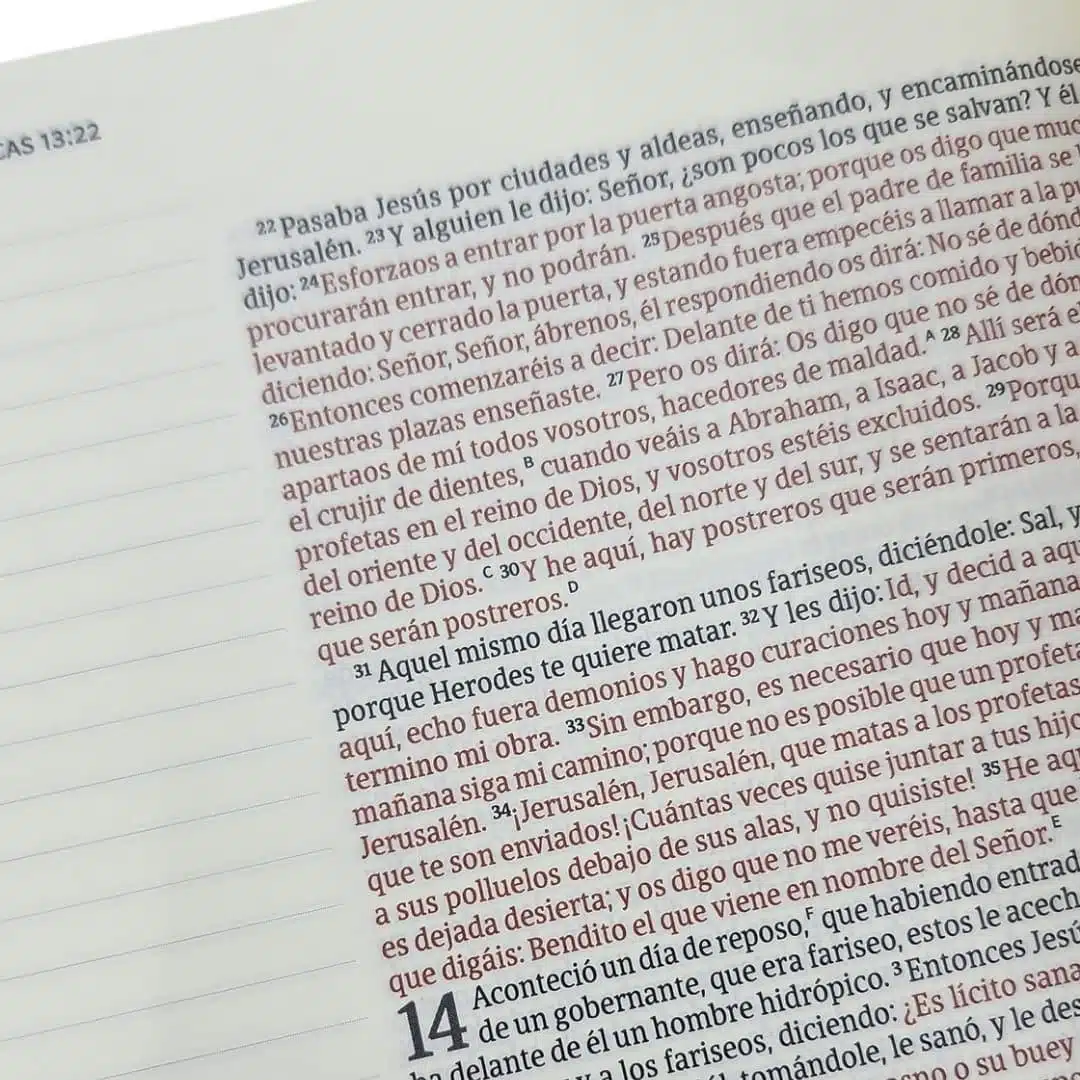 CAS 13:22
22 Pasaba Jesús por ciudades y aldeas, enseñando, y encaminándose
Jerusalén. 23 Y alguien le dijo: Señor, ¿son pocos los que se salvan? Y él
dijo: 24 Esforzaos a entrar por la puerta angosta; porque os digo que muc
procurarán entrar, y no podrán. 25 Después que el padre de familia se
levantado y cerrado la puerta, y estando fuera empecéis a llamar a la pu
diciendo: Señor, Señor, ábrenos, él respondiendo os dirá: No sé de dónd
26 Entonces comenzaréis a decir: Delante de ti hemos comido y bebid
nuestras plazas enseñaste. 27 Pero os dirá: Os digo que no sé de dón
apartaos de mí todos vosotros, hacedores de maldad.A 28 Allí será e
el crujir de dientes,B cuando veáis a Abraham, a Isaac, a Jacob y a
profetas en el reino de Dios, y vosotros estéis excluidos. 29 Porqu
del oriente y del occidente, del norte y del sur, y se sentarán a la
reino de Dios.C 30 Y he aquí, hay postreros que serán primeros,
que serán postreros.D
31 Aquel mismo día llegaron unos fariseos, diciéndole: Sal, y
porque Herodes te quiere matar. 32 Y les dijo: Id, y decid a aqu
aquí, echo fuera demonios y hago curaciones hoy y mañana
termino mi obra. 33 Sin embargo, es necesario que hoy y ma
mañana siga mi camino; porque no es posible que un profeta
Jerusalén. 34 ¡Jerusalén, Jerusalén, que matas a los profetas
que te son enviados! ¡Cuántas veces quise juntar a tus hijo
a sus polluelos debajo de sus alas, y no quisiste! 35 He aqu
es dejada desierta; y os digo que no me veréis, hasta que
que digáis: Bendito el que viene en nombre del Señor.E
14 Aconteció un día de reposo,F que habiendo entrad
de un gobernante, que era fariseo, estos le acech
delante de él un hombre hidrópico. 3 Entonces Jesú
a los fariseos, diciendo: ¿Es lícito sana
tomándole, le sanó, y le des
o su buey